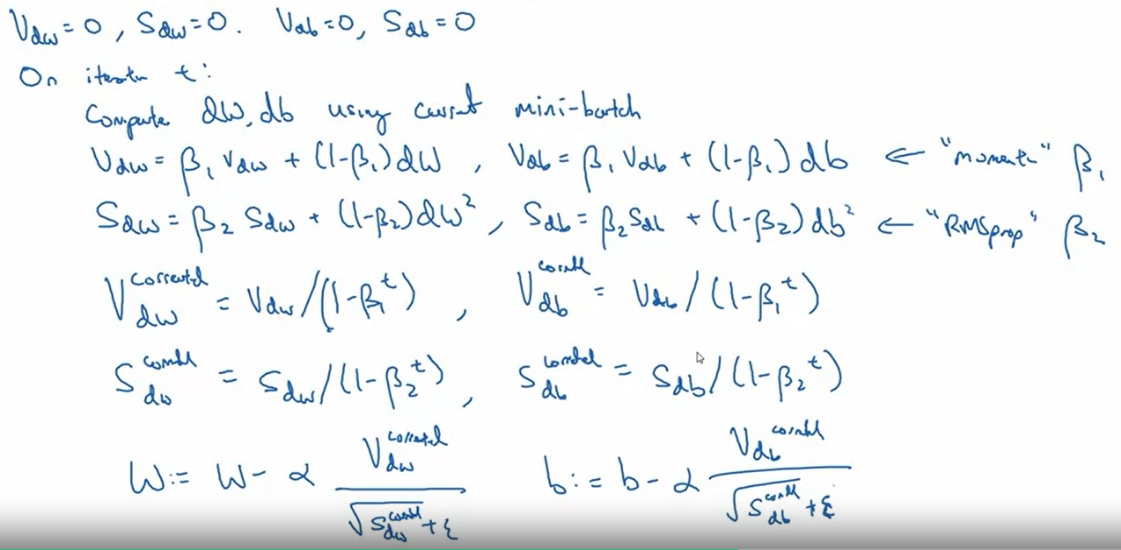 V_dw = 0, S_dw = 0. V_db = 0, S_db = 0
On iteration t:
Compute dW, db using current mini-batch
V_dw = β₁ V_dw + (1-β₁) dW , V_db = β₁ V_db + (1-β₁) db ← "moment" β₁
S_dw = β₂ S_dw + (1-β₂) dW² , S_db = β₂ S_db + (1-β₂) db² ← "RMSprop" β₂
V_dw^corrected = V_dw / (1-β₁^t) , V_db^corrected = V_db / (1-β₁^t)
S_dw^corrected = S_dw / (1-β₂^t) , S_db^corrected = S_db / (1-β₂^t)
W := W - α V_dw^corrected / (√S_dw^corrected + ε) b := b - α V_db^corrected / (√S_db^corrected + ε)